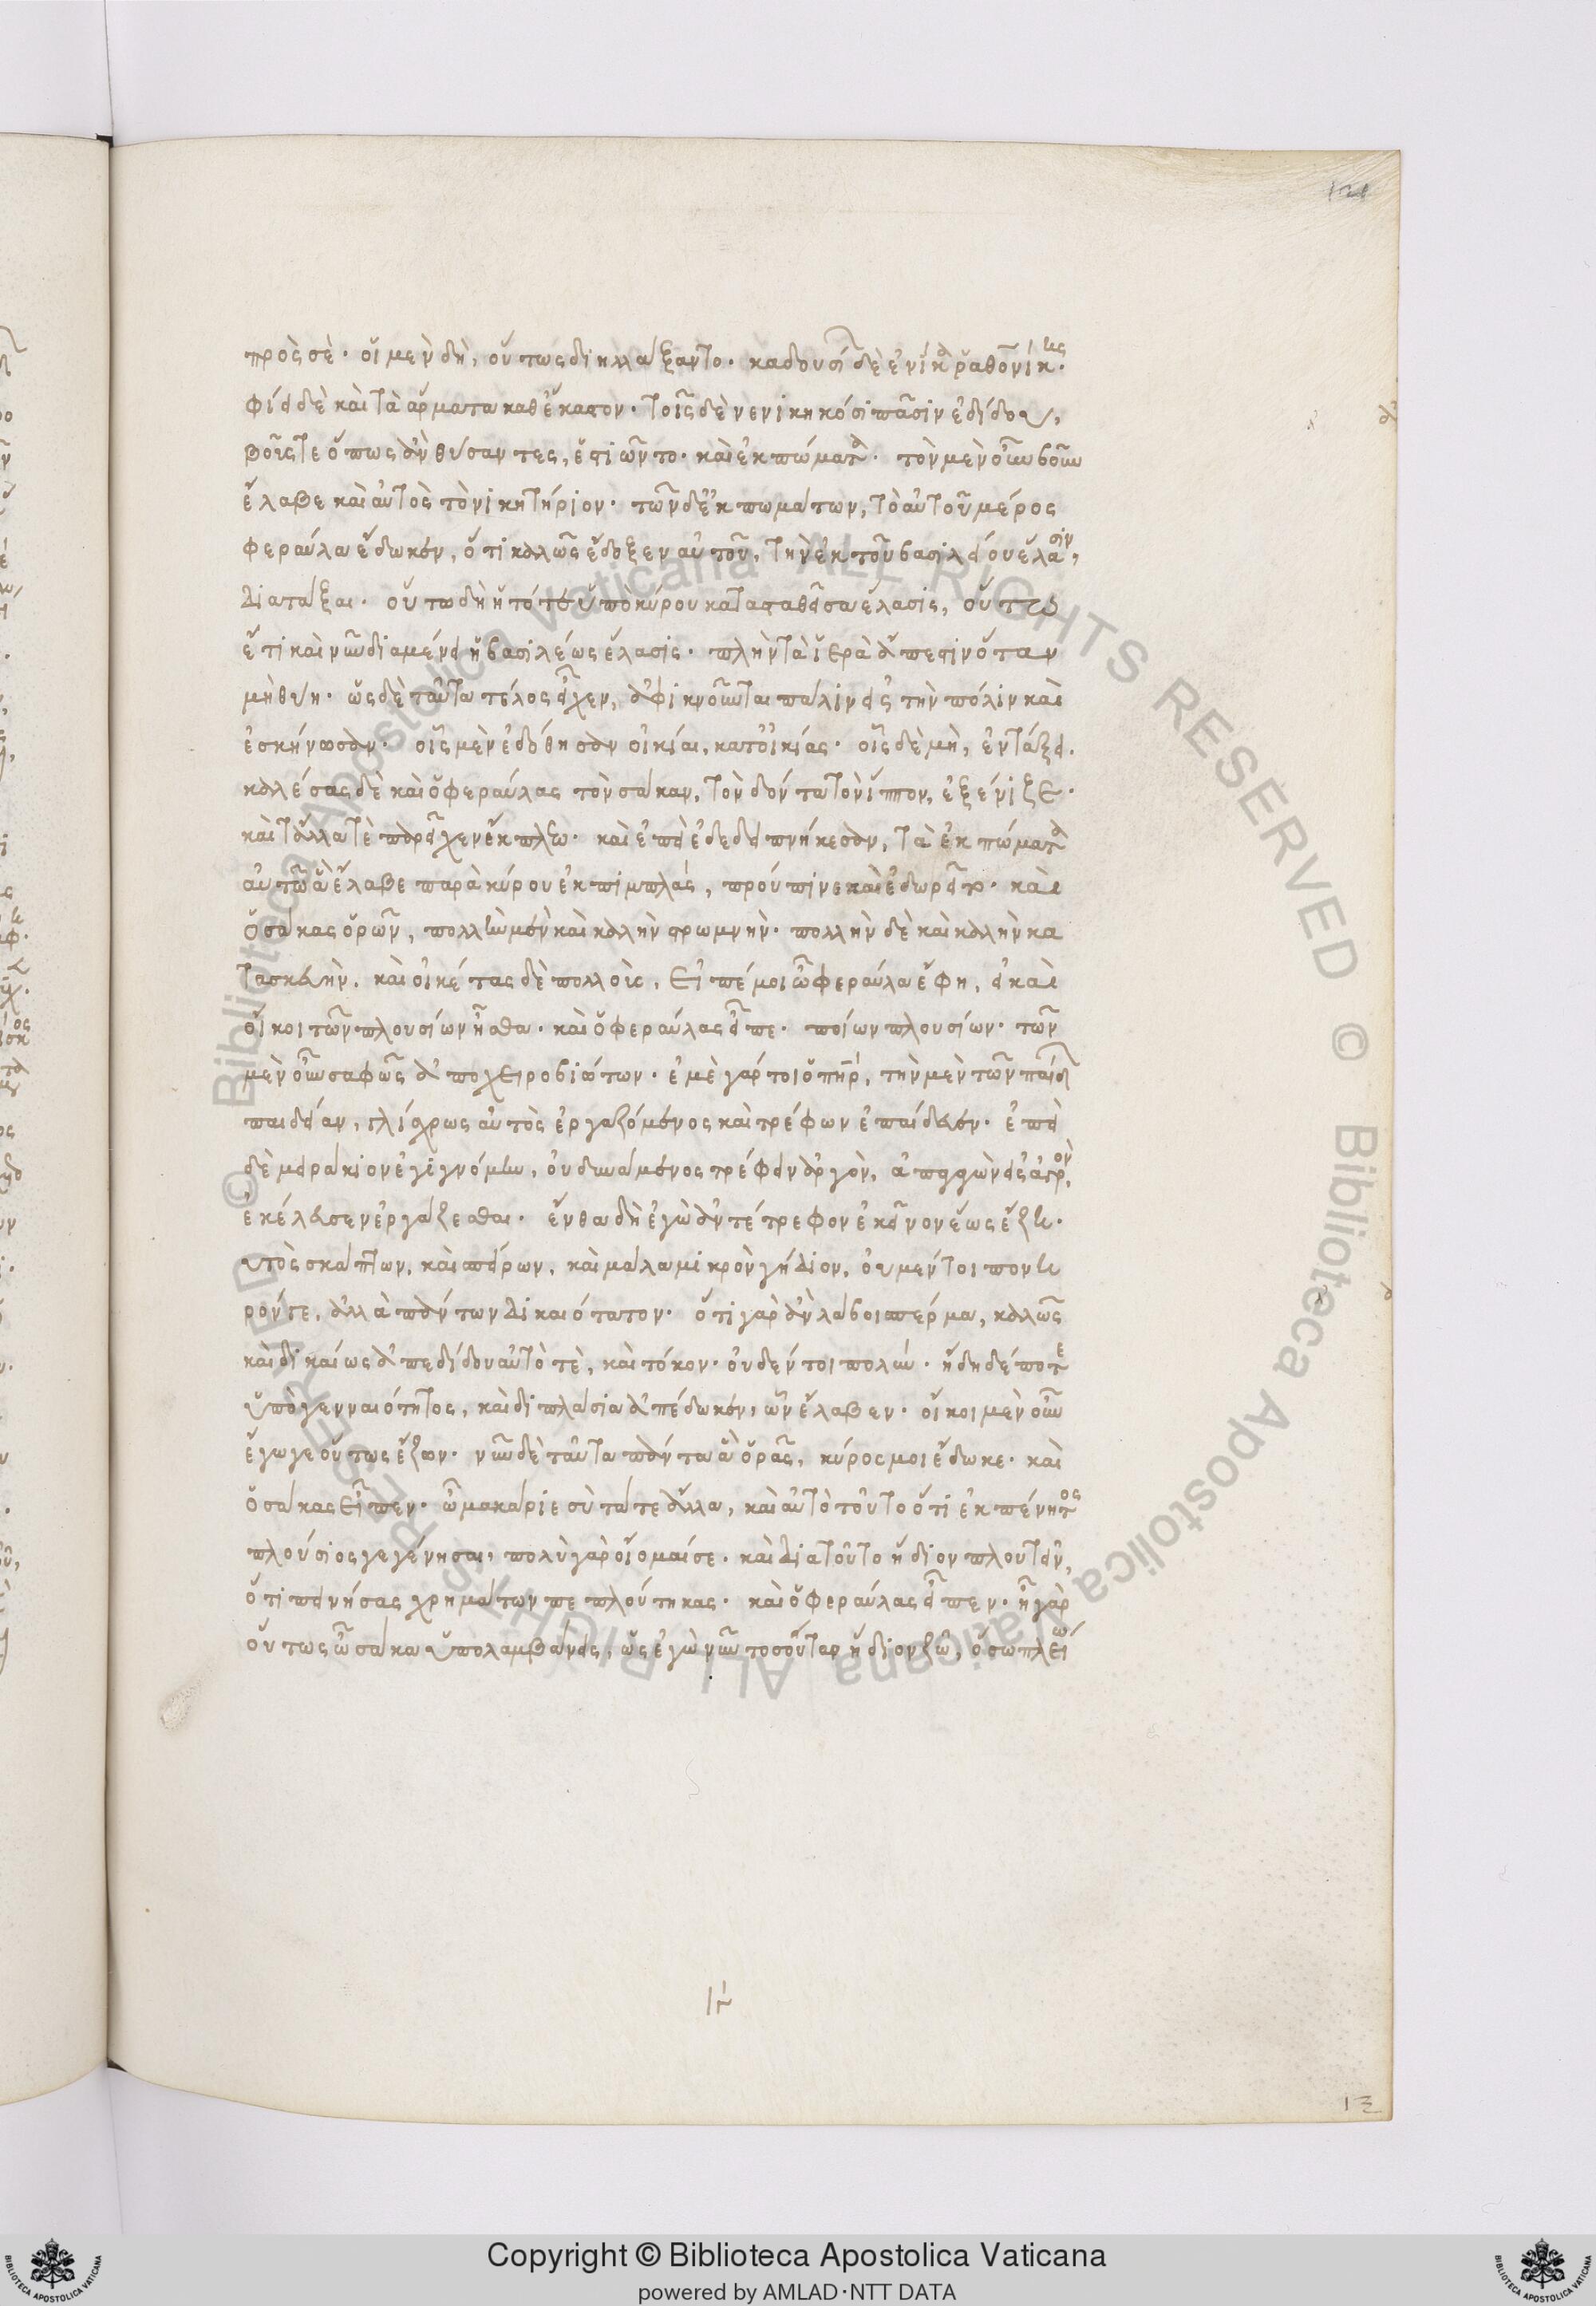 πρὸς σὲ. οἱ μὲν δὴ, οὕτως διηλλάξαντο. καδουσί δὲ ἐνίκα ῥαθονίκης.
ἀφίει δὲ καὶ τὰ ἅρματα καθέκαστον. τοῖς δὲ νενικηκόσι πᾶσιν ἐδίδου,
βοῦς τε ὅπως ἂν θύσαντες, ἑστιῶντο. καὶ ἐκπώματα. τὸν μὲν οὖν βοῦν
ἔλαβε καὶ αὐτὸς τὸ νικητήριον. τῶν δ' ἐκπωμάτων, τὸ αὐτοῦ μέρος
φεραύλα ἔδωκεν, ὅτι καλῶς ἔδοξεν αὐτοῦ, τὴν ἐκ τοῦ βασιλείου ἔλασιν,
διατάξαι. οὕτω δὴ ἡ τότε ὑπὸ κύρου κατασταθεῖσα ἔλασις, οὕτω
ἔτι καὶ νῦν διαμένει ἡ βασιλέως ἔλασις. πλὴν τὰ ἱερὰ ἄπεστιν ὅταν
μὴ θύη. ὡς δὲ ταῦτα τέλος εἶχεν, ἀφικνοῦνται πάλιν εἰς τὴν πόλιν καὶ
ἐσκήνωσαν. οἷς μὲν ἐδόθησαν οἰκίαι, κατ' οἰκίας. οἷς δὲ μὴ, ἐν τάξει.
καλέσας δὲ καὶ ὁ φεραύλας τὸν σάκαν, τὸν δόντα τὸν ἵππον, ἐξένιζε.
καὶ τἄλλα τὲ παρεῖχεν ἔκπλεω. καὶ ἐπεὶ ἐδεδειπνήκεσαν, τὰ ἐκπώματα
αὐτῷ ἃ ἔλαβε παρὰ κύρου ἐκπιμπλάς, προύπινε καὶ ἐδωρεῖτο. καὶ
ὁ σάκας ὁρῶν, πολλὴν μὲν καὶ καλὴν στρωμνήν. πολλὴν δὲ καὶ καλὴν κα
τασκευὴν. καὶ οἰκέτας δὲ πολλοὺς, εἰπέ μοι ὦ φεραύλα ἔφη, εἰ καὶ
οἴκοι τῶν πλουσίων ἦσθα. καὶ ὁ φεραύλας εἶπε. ποίων πλουσίων. τῶν
μὲν οὖν σαφῶς ἀποχειροβιώτων. ἐμὲ γάρ τοι ὁ πηρ, τὴν μὲν τῶν παίδ
παιδείαν, γλίσχρως αὐτὸς ἐργαζόμενος καὶ τρέφων ἐπαίδευεν. ἐπεὶ
δὲ μειράκιον ἐγιγνόμην, οὐ δυνάμενος τρέφειν ἀργὸν, ἀπαγαγὼν εἰς ἀγρὸν,
ἐκέλευσεν ἐργάζεσθαι. ἔνθα δὴ ἐγὼ ἀντέτρεφον ἐκεῖνον ἕως ἔζη.
αὐτὸς σκάπτων, καὶ σπείρων, καὶ μάλα μικρὸν γήδιον, οὐ μέντοι πονη
ρόν γε, ἀλλὰ πάντων δικαιότατον. ὅτι γὰρ ἂν λάβοι σπέρμα, καλῶς
καὶ δικαίως ἀπεδίδου αὐτὸ τὲ, καὶ τόκον. οὐδέν τοι πολύ. ἤδη δέ ποτε
ὑπὸ γενναιότητος, καὶ διπλάσια ἀπέδωκεν, ὧν ἔλαβεν. οἴκοι μὲν οὖν
ἔγωγε οὕτως ἔζων. νῦν δὲ ταῦτα πάντα ἃ ὁρᾶς, κύρος μοι ἔδωκε. καὶ
ὁ σάκας εἶπεν. ὦ μακάριε σὺ τά τε ἄλλα, καὶ αὐτὸ τοῦτο ὅτι ἐκ πένητος
πλούσιος γεγένησαι, πολὺ γὰρ οἴομαί σε. καὶ διατοῦτο ἥδιον πλουτεῖν,
ὅτι πεινήσας χρημάτων πεπλούτηκας. καὶ ὁ φεραύλας εἶπεν. ἦ γὰρ
οὕτως ὦ σάκα ὑπολαμβάνεις, ὡς ἐγὼ νῦν τοσούτω ἥδιον ζῶ, ὅσω πλείω
© Biblioteca Apostolica Vaticana ALL RIGHTS RESERVED
Copyright © Biblioteca Apostolica Vaticana
powered by AMLAD·NTT DATA